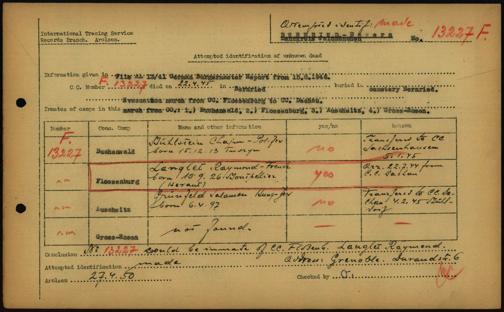 Attempted identif: made
International Tracing Service
Records Branch. Arolsen.
No. 13227 F.
Attempted identification of unknown dead
Information given in File AL 12/41 German Burgermaster Report from 15.8.1946.
F.
C.C. Number 13227 died on 22.4.45 in Bernried buried in cemetery Bernried.
Evacuation march from CC. Flossenburg to CC. Dachau.
Inmates of camps in march from CC.: 1.) Buchenwald, 2.) Flossenburg, 3.) Auschwitz, 4.) Gross-Rosen.
Number Conc. Camp Name and other information yes/no
F. 13227 Buchenwald Chapin - Pol.-Jew born 15.12.13 no Transfer to CC Sachsenhausen 5.1.45
-"- Flossenburg Langlet Raymond - French born 10.9.26 yes Arr. 22.7.44 from C.C. Dachau
-"- Auschwitz Grünfeld Salamon Hung-Jew born 6.4.97 no Transfer to CC Dachau 4.2.45
-"- Gross-Rosen not found.
Conclusion Nr. 13227 could be inmate of CC. Flossenb. Langlet Raymond.
Address: Grenoble.
Attempted identification made
Arolsen 27.4.50 Checked by